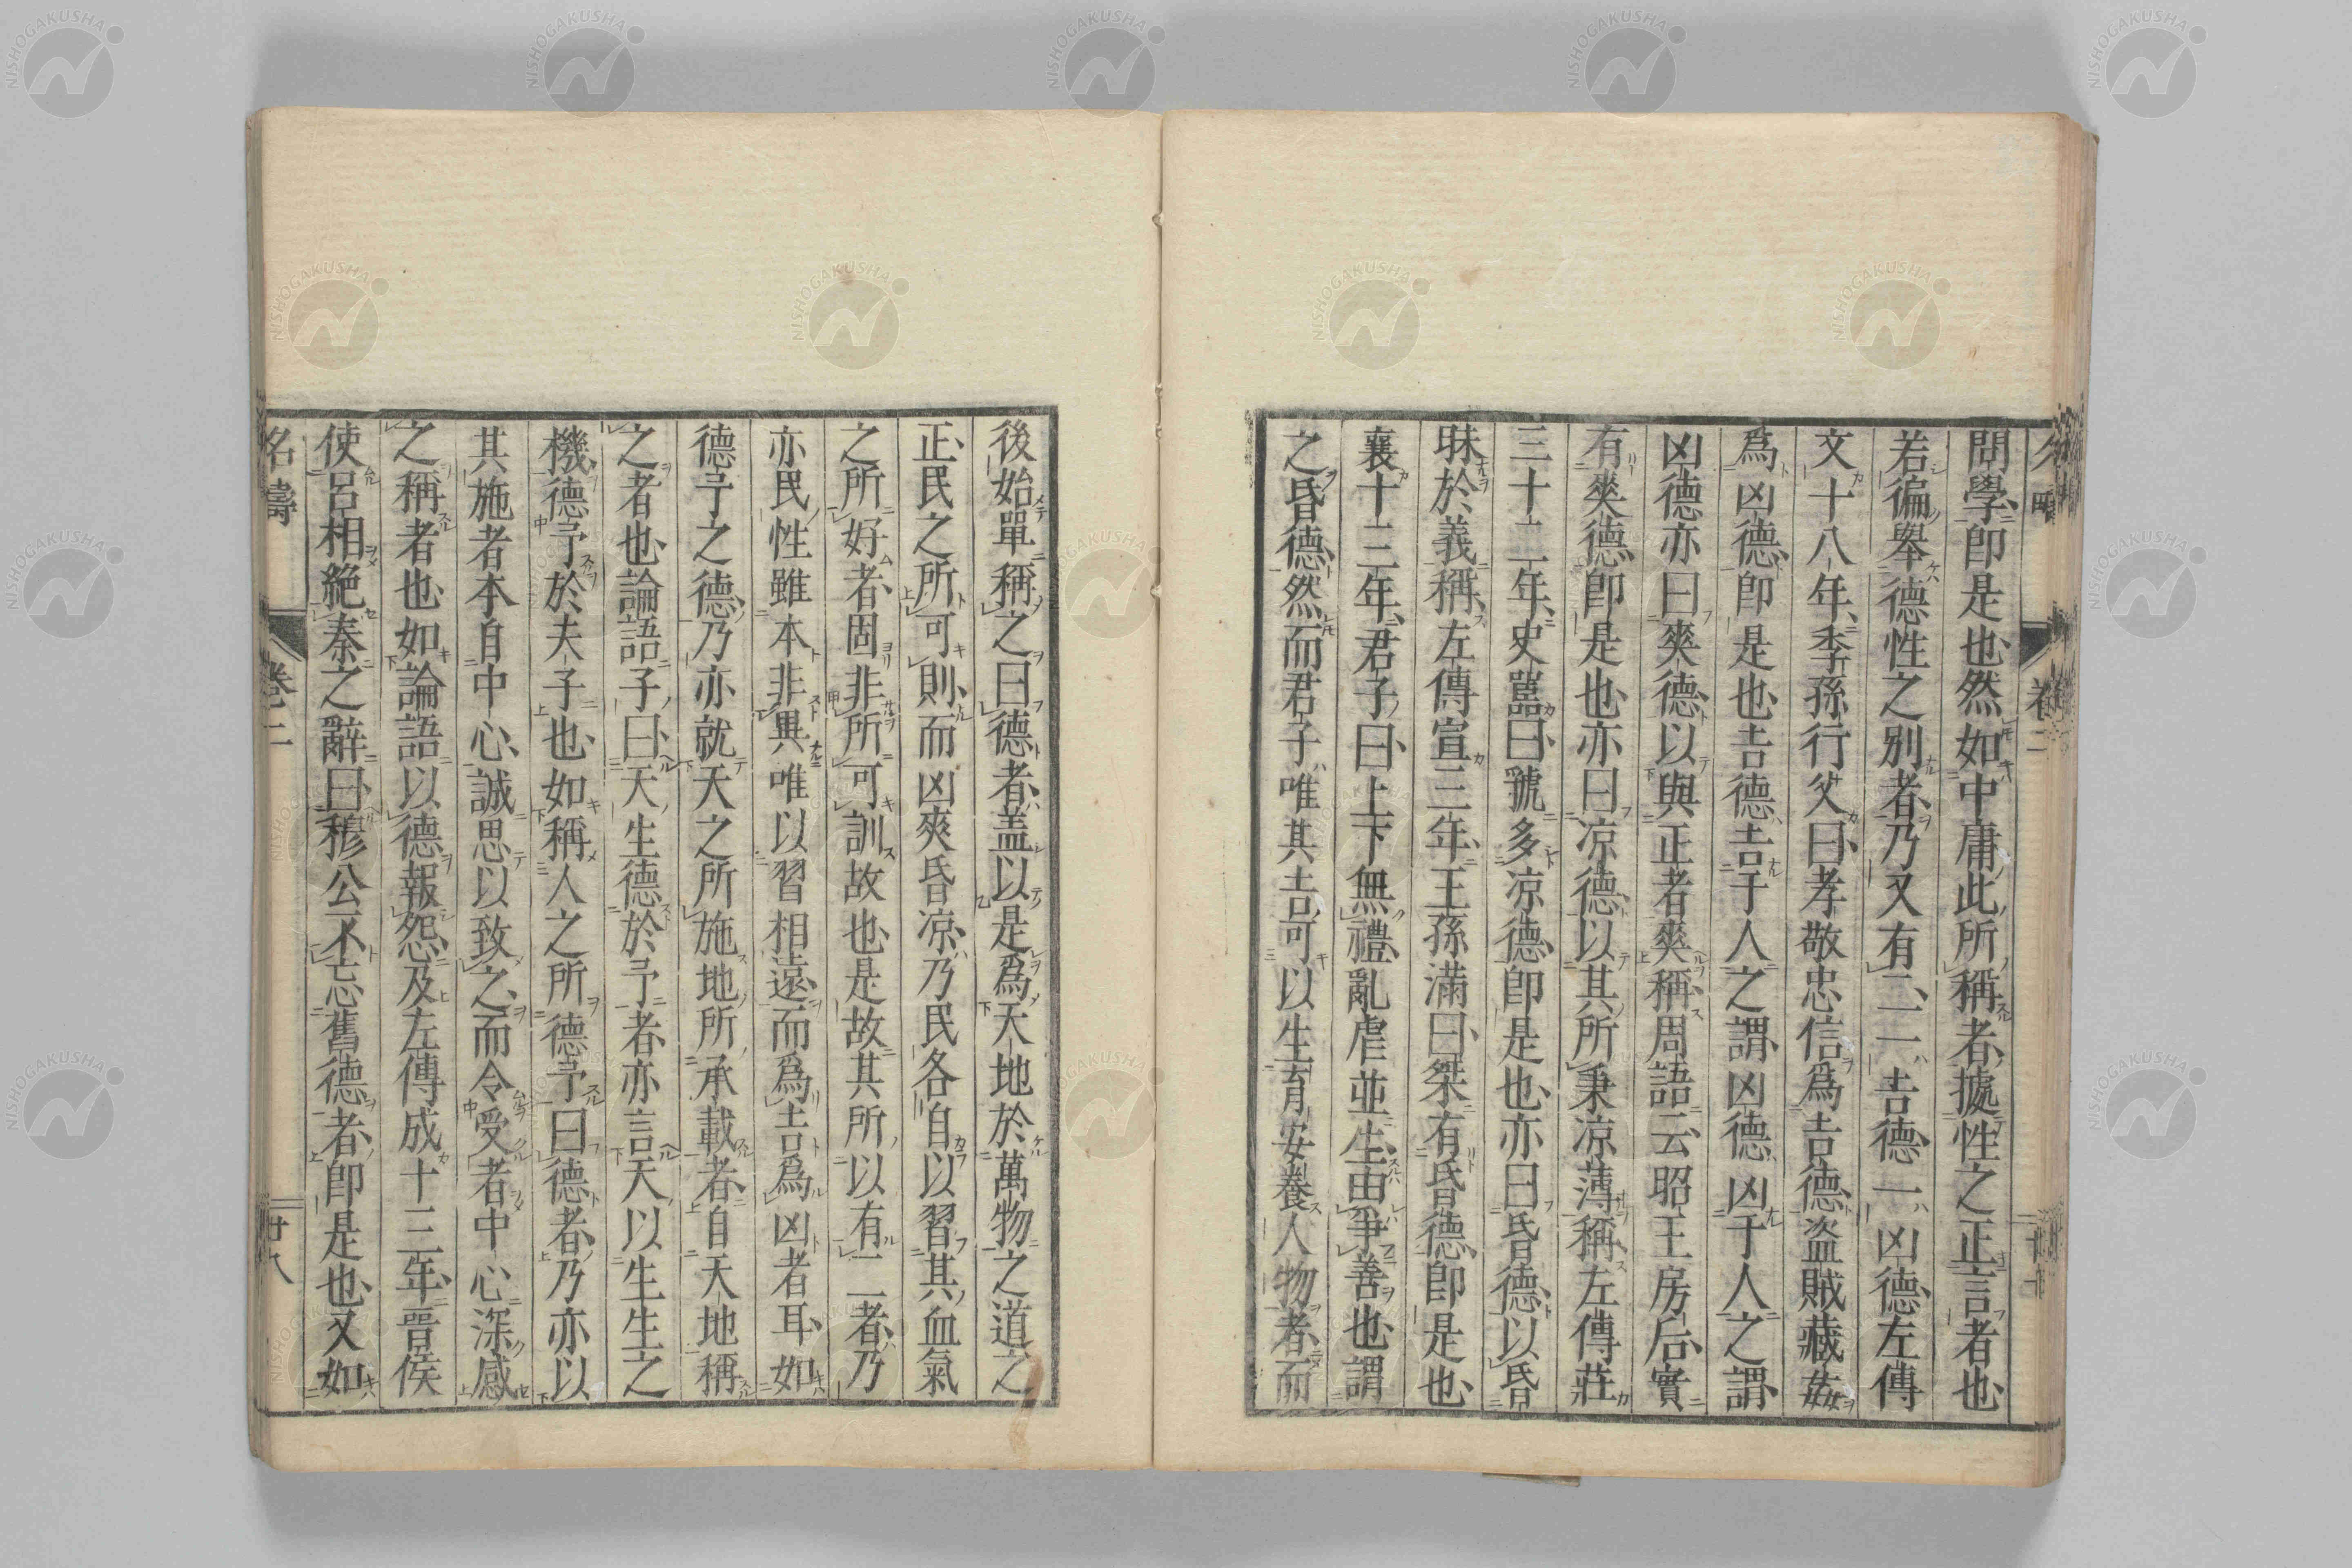 問學、即是也、然如中庸此所稱者、據性之正言者也、
若徧舉德性之別者、乃又有二、一吉德、一凶德、左傳
文十八年、季孫行父曰、孝敬忠信爲吉德、盗賊藏姦
爲凶德、即是也、吉德、吉于人之謂、凶德、凶于人之謂、
凶德亦曰爽德、以與正者爽稱、周語云、昭王房后、實
有爽德、即是也、亦曰涼德、以其所秉涼薄稱、左傳莊
三十二年、史嚚曰、虢多涼德、即是也、亦曰昏德、以昏
昧於義稱、左傳宣三年、王孫滿曰、桀有昏德、即是也、
襄十三年、君子曰、上下無禮、亂虐並生、由爭善也、謂
之昏德、然而君子唯其吉可以生育安養人物者、而
後始單稱之曰德者、蓋以是爲天地於萬物之道之
正、民之所可則、而凶爽昏涼、乃民各自以習其血氣
之所好者、固非所可訓故也、是故其所以有二者、乃
亦民性雖本非異、唯以習相遠、而爲吉爲凶者耳、如
德予之德、乃亦就天之所施地所承載者、自天地稱
之者也、論語子曰、天生德於予者、亦言天以生生之
機、德予於夫子也、如稱人之所德予曰德者、乃亦以
其施者本自中心、誠思以致之、而令受者中心深感
之稱者也、如論語以德報怨、及左傳成十三年、晉侯
使呂相絶秦之辭曰、穆公不忘舊德者、即是也、又如
名疇 卷二 廿八